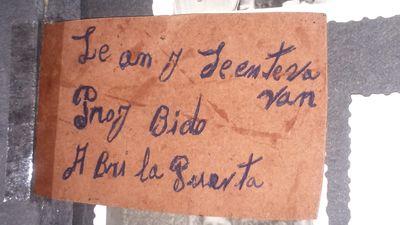 Le an y Se entera
van
Proy Bido
A Bri la Puerta